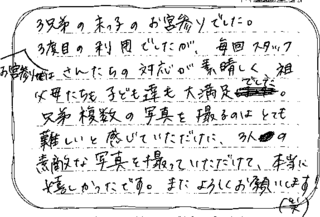 3兄弟の末っ子のお宮参りでした。
3度目の利用でしたが、毎回スタッフ
お宮参りは
さんたちの対応が素晴しく、祖
父母たちも子ども達も大満足でした。
兄弟複数の写真を撮るのはとても
難しいと感じていただけに、3人の
素敵な写真を撮っていただけて、本当に
嬉しかったです。またよろしくお願いします